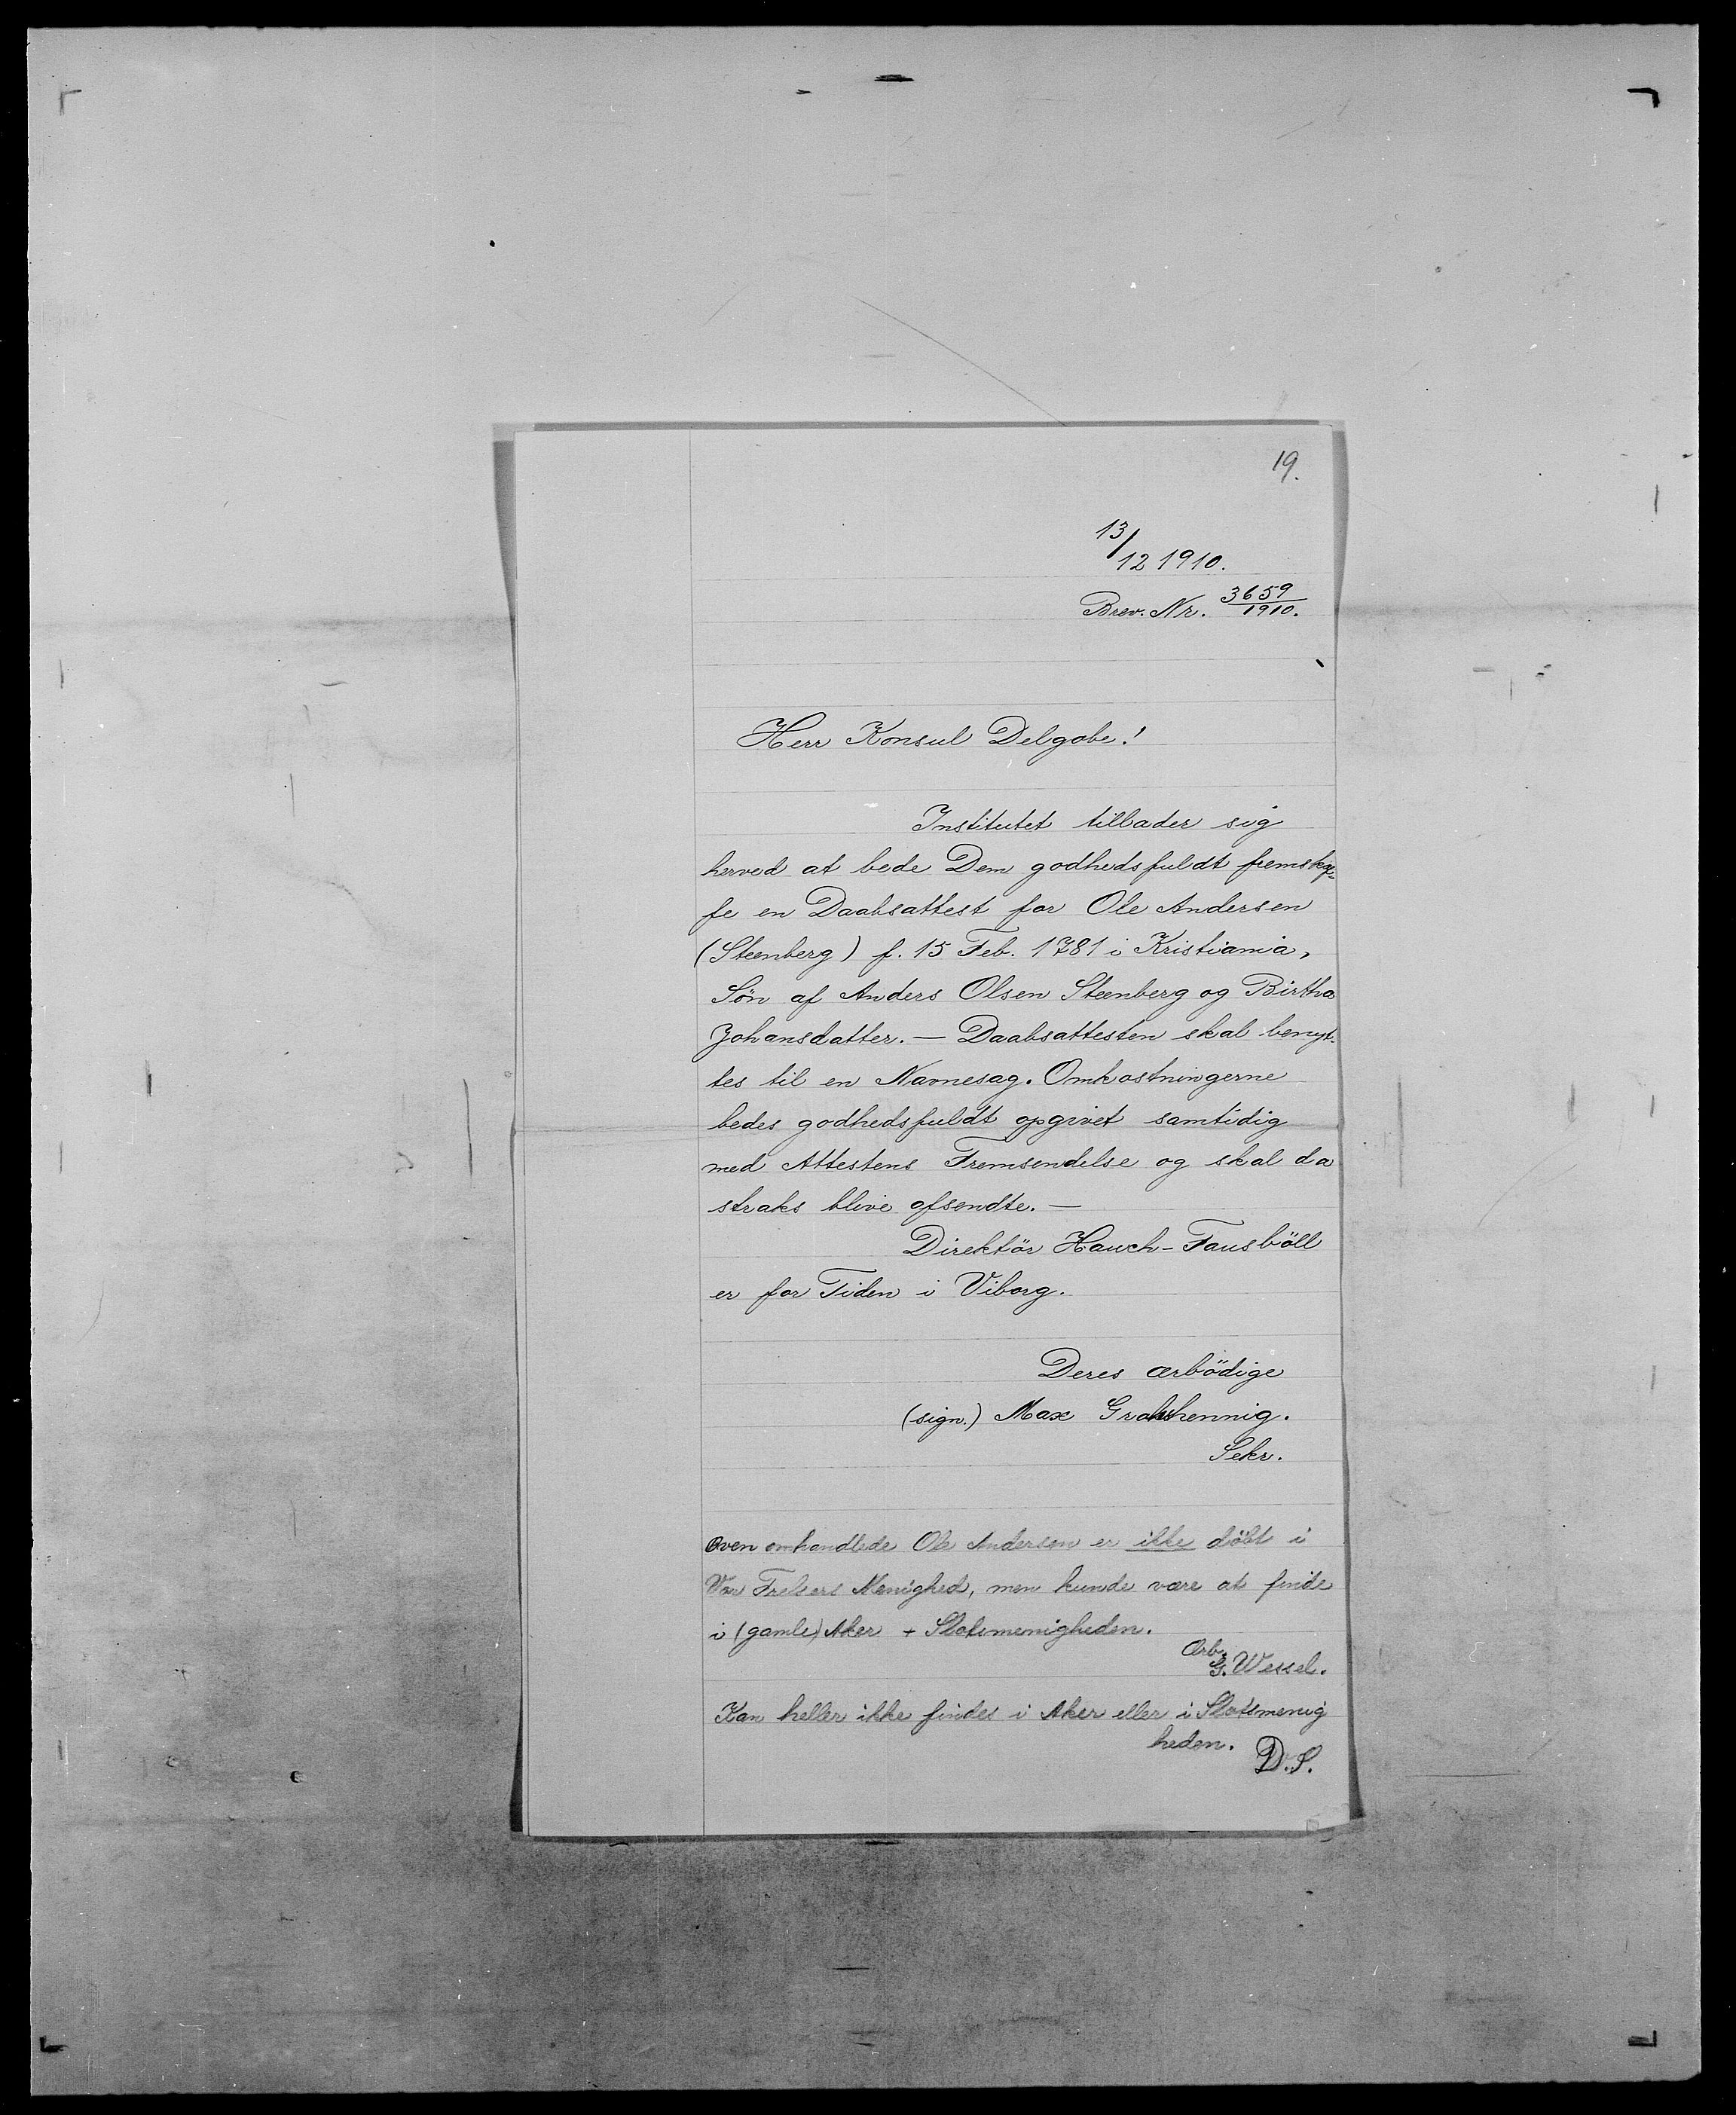 19.
13/12 1910.
Brev. Nr. 3659/1910.
Herr Konsul Delgobe!
Institutet tillader sig
herved at bede Dem godhedsfuldt fremskaf=
fe en Daabsattest for Ole Andersen
(Steenberg) f. 15 Feb. 1781 i Kristiania,
Sön af Anders Olsen Steenberg og Birtha
Johansdatter. — Daabsattesten skal benyt-
tes til en Navnesag. Omkostningerne
bedes godhedsfuldt opgivet samtidig
med Attestens Fremsendelse og skal da
straks blive afsendte. —
Direktör Hauch-Fausböll
er for Tiden i Viborg.
Deres ærbödige
(sign.) Max Grohshennig.
Sekr.
Oven omhandlede Ole Andersen er ikke döbt i
Vor Frelsers Menighed, men kunde være at finde
i (gamle) Aker + Slotsmenigheden.
Ærb.
G. Wessel.
Kan heller ikke findes i Aker eller i Slotsmenig
heden.
D.S.